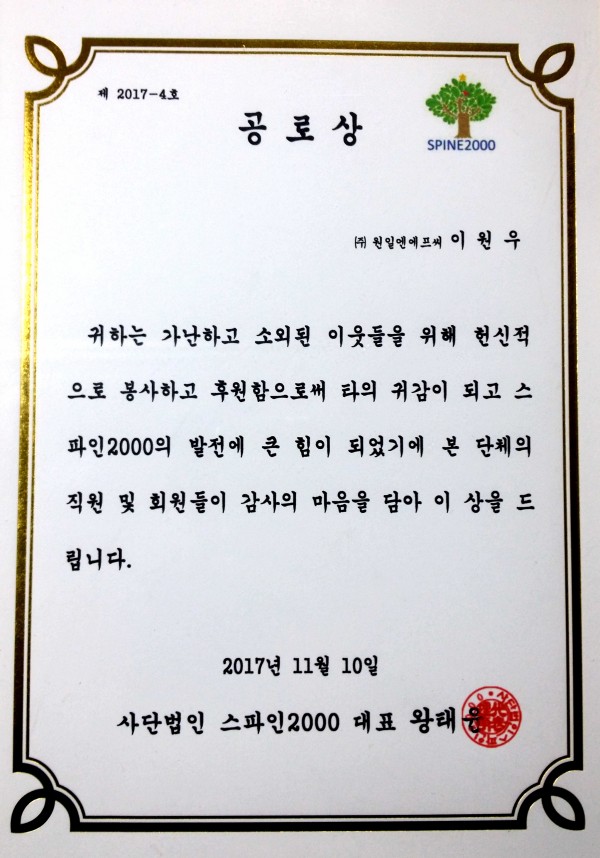 제 2017-4호
SPINE2000
공 로 상
㈜ 원일앤에프씨 이 원 우
귀하는 가난하고 소외된 이웃들을 위해 헌신적
으로 봉사하고 후원함으로써 타의 귀감이 되고 스
파인2000의 발전에 큰 힘이 되었기에 본 단체의
직원 및 회원들이 감사의 마음을 담아 이 상을 드
립니다.
2017년 11월 10일
사단법인 스파인2000 대표 왕태윤